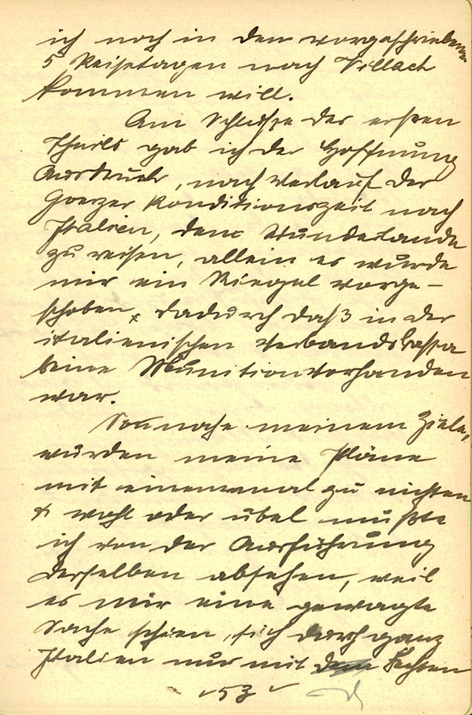 ich noch in den vorgeschriebenen
5 Reisetagen nach Villach
kommen will.
Am Schlusse des ersten
Theils gab ich der Hoffnung
Ausdruck, nach Verlauf der
Goerzer Konditionszeit nach
Italien, dem Wunderlande
zu reisen, allein es wurde
mir ein Riegel vorge-
schoben, dadurch daß in der
italienischen Verbandskassa
keine Munition vorhanden
war.
So nahe meinem Ziele,
wurden meine Pläne
mit einemmal zu nichten
& wohl oder übel mußte
ich von der Ausführung
derselben absehen, weil
es mir eine gewagte
Sache schien, sich durch ganz
Italien nur mit dem Fechten
53